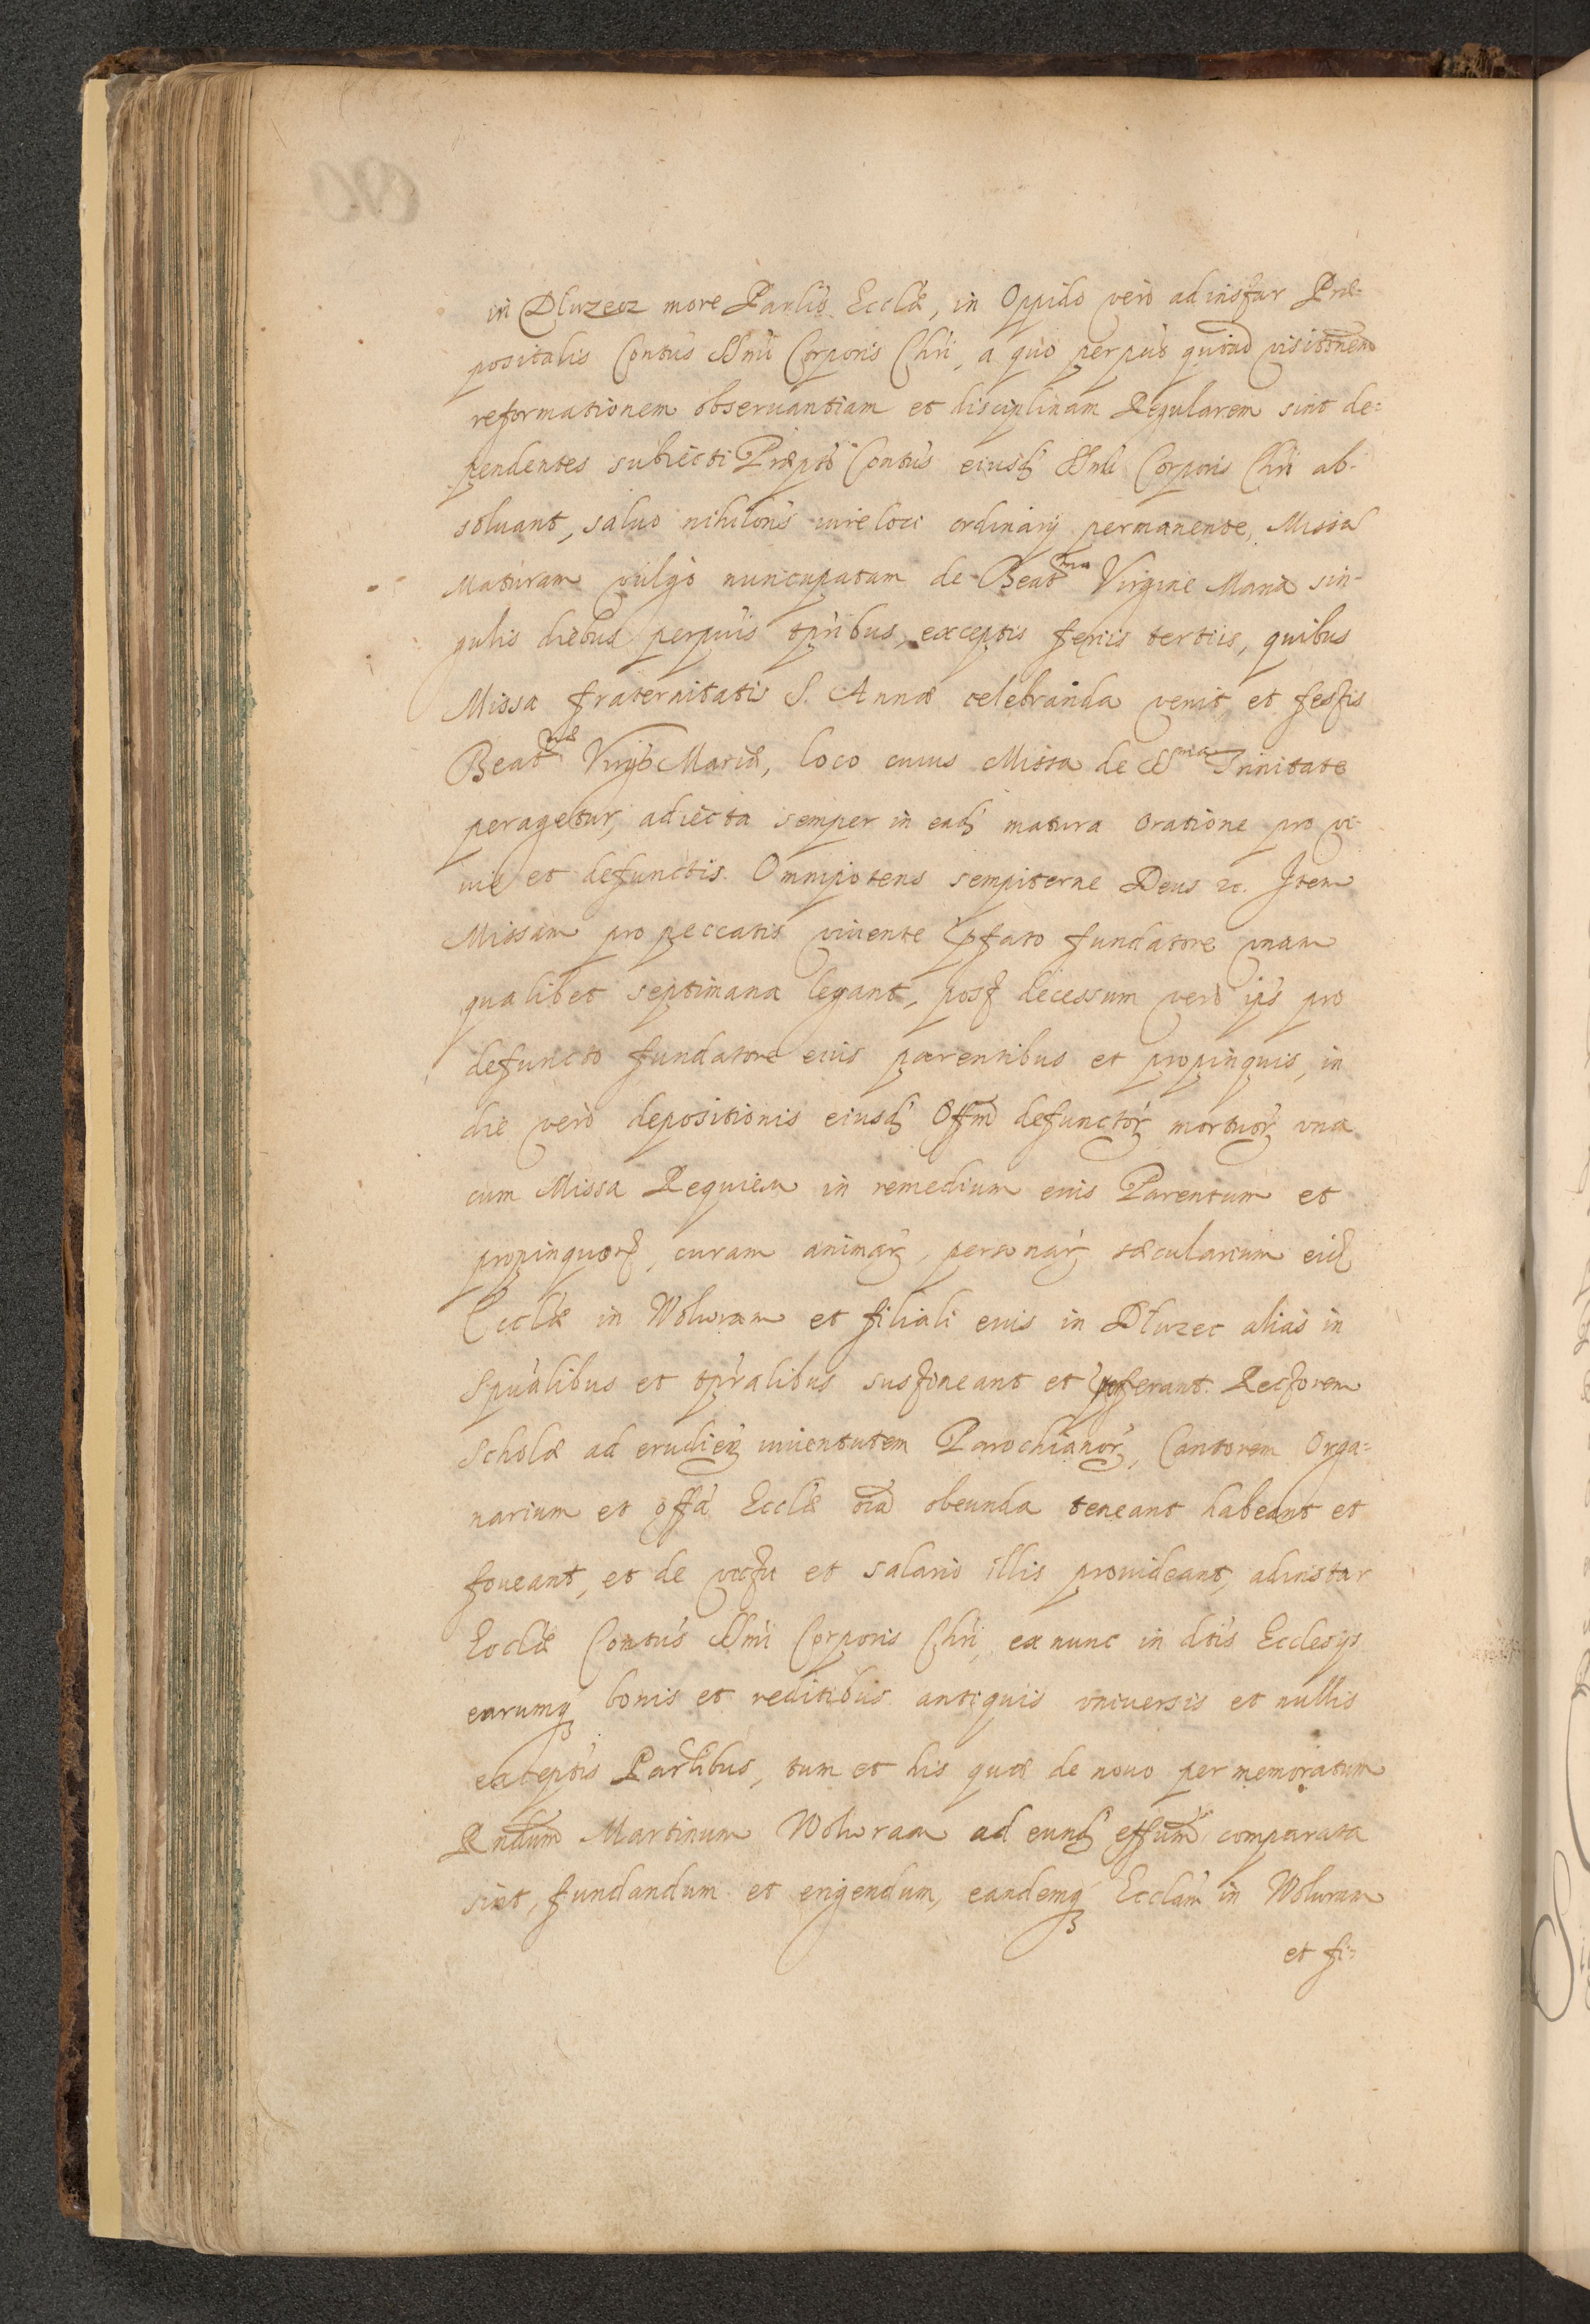 in Dłuzecz more Parlis Ecclæ, in Oppido verò ad instar Præ-
positalis Contus SSmi Corporis Chri, a quo perpuò quoad visitônem
reformationem obseruantiam et disciplinam Regularem sint de=
pendentes subiecti Præpto Contus eiusd SSmi Corporis Chri ab-
soluant, saluo nihilons iure loci ordinarij permanente, Missā
Maturam vulgò nuncupatam de Beatma Virgine Maria sin-
gulis diebus perpuis tpribus, exceptis ferijs tertiis, quibus
Missa fraternitatis S. Annæ celebranda venit, et festis
Beatmæ Virgis Mariæ, loco cuius Missa de SSma Trinitate
peragetur, adiecta semper in ead matura Oratione pro vi-
uis et defunctis. Omnipotens sempiterne Deus &c. Item
Missam pro peccatis viuente pfato fundatore vnam
qualibet septimana legant, post decessum verò ips pro
defuncto fundatore eius parentibus et propinquis, in
die verò depositionis eiusd Offm defunctor mortuor vna
cum Missa Requiem in remedium eius Parentum et
propinquor, curam animar, personar sæcularium eid
Ecclæ in Woluram et filiali eius in Dłuzec alias in
Spualibus et tpralibus sustineant et pferant. Rectorem
Scholæ ad erudien iuuentutem Parochianor, Cantorem Orga=
narium et offa Ecclæ oia obeunda teneant habeant et
foueant, et de victu et salario illis prouideant, ad instar
Ecclæ Contus SSmi Corporis Chri, ex nunc in dtis Ecclesijs
earumq bonis et reditibus antiquis vniuersis et nullis
exceptis Parlibus, tum et his quæ de nouo per memoratum
Rndum Martinum Woluram ad eund effum comparata
sint, fundandum et erigendum, eandemq Ecclam in Woluram
et fi=